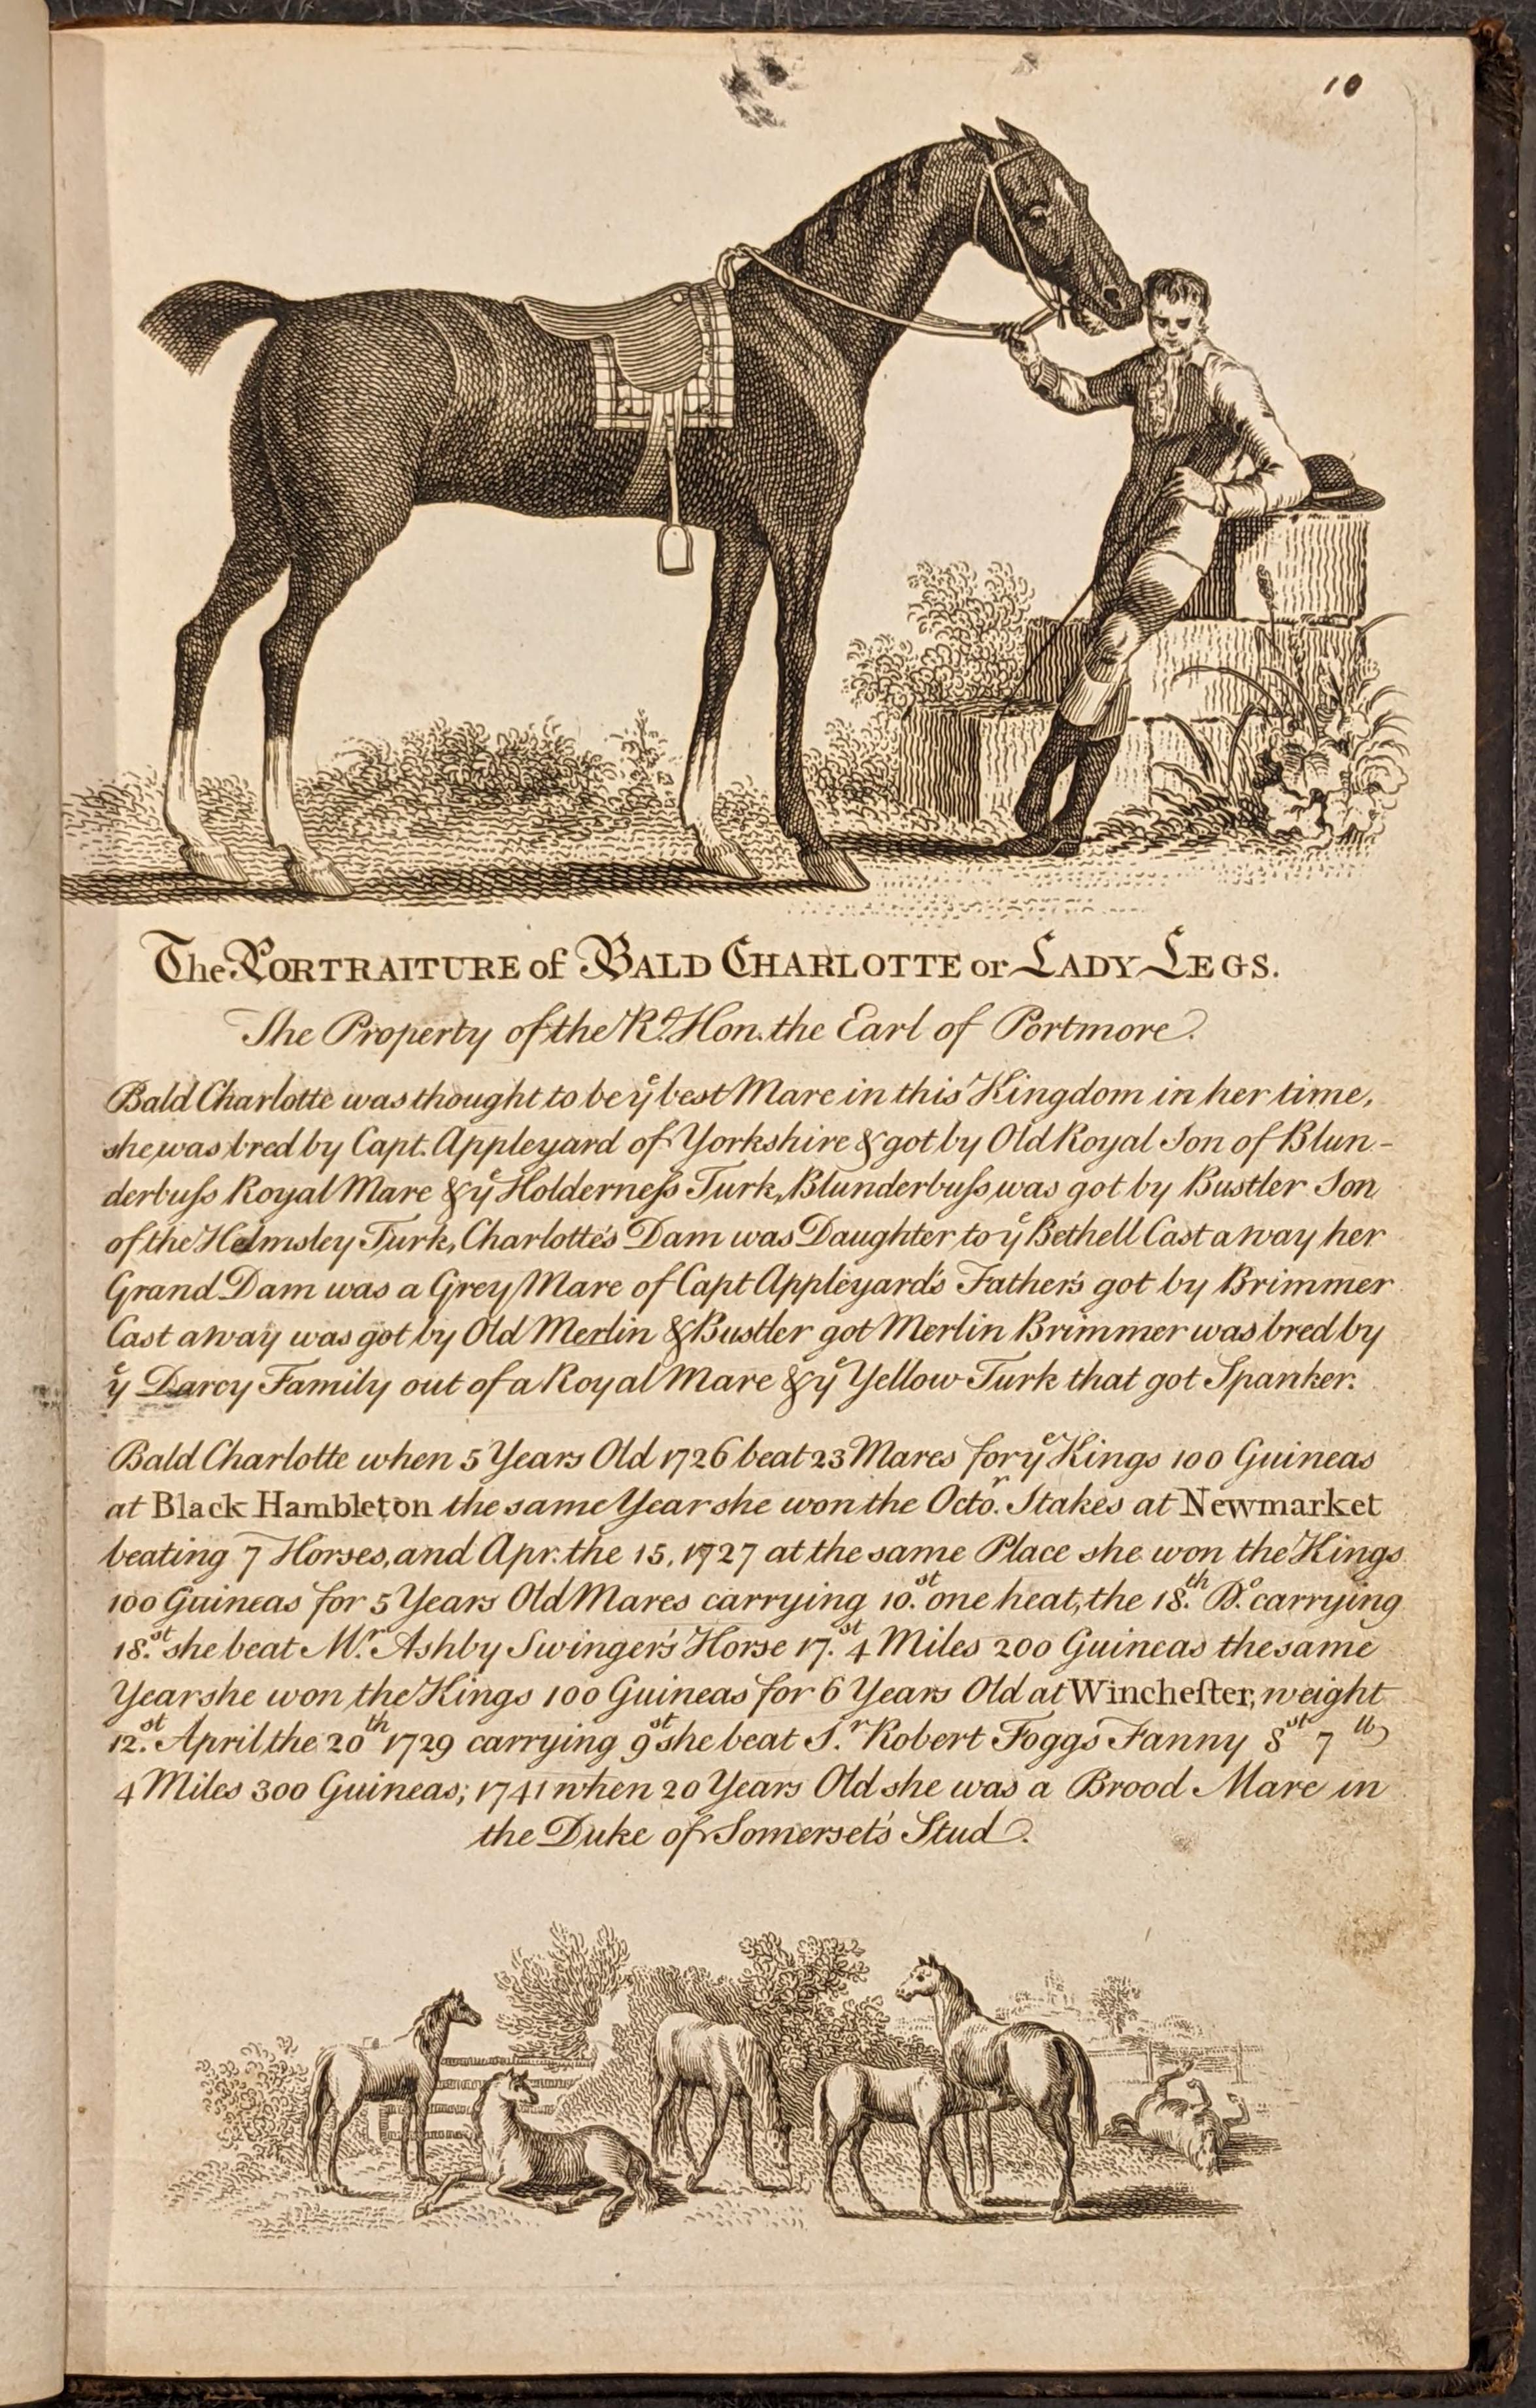 10
The PORTRAITURE of BALD CHARLOTTE or LADY LEGS.
The Property of the Rᵗ. Hon. the Earl of Portmore.
Bald Charlotte was thought to be yᵉ best Mare in this Kingdom in her time,
she was bred by Capt. Appleyard of Yorkshire & got by Old Royal Son of Blun-
derbuſs Royal Mare & yᵉ Holderneſs Turk, Blunderbuſs was got by Bustler Son
of the Helmsley Turk, Charlotte's Dam was Daughter to yᵉ Bethell Cast away her
Grand Dam was a Grey Mare of Capt Appleyard's Father's got by Brimmer
Cast away was got by Old Merlin & Bustler got Merlin Brimmer was bred by
yᵉ Darcy Family out of a Royal Mare & yᵉ Yellow Turk that got Spanker.
Bald Charlotte when 5 Years Old 1726 beat 23 Mares for yᵉ Kings 100 Guineas
at Black Hambleton the same Year she won the Octoʳ. Stakes at Newmarket
beating 7 Horses, and Apr. the 15, 1727 at the same Place she won the Kings
100 Guineas for 5 Years Old Mares carrying 10.ˢᵗ one heat, the 18.ᵗʰ Dᵒ. carrying
18.ˢᵗ she beat Mʳ. Ashby Swinger's Horse 17.ˢᵗ 4 Miles 200 Guineas the same
Year she won the Kings 100 Guineas for 6 Years Old at Wincheſter, weight
12.ˢᵗ April the 20ᵗʰ 1729 carrying 9ˢᵗ she beat Sʳ. Robert Foggs Fanny 8ˢᵗ 7ˡᵇ
4 Miles 300 Guineas; 1741 when 20 Years Old she was a Brood Mare in
the Duke of Somerset's Stud.